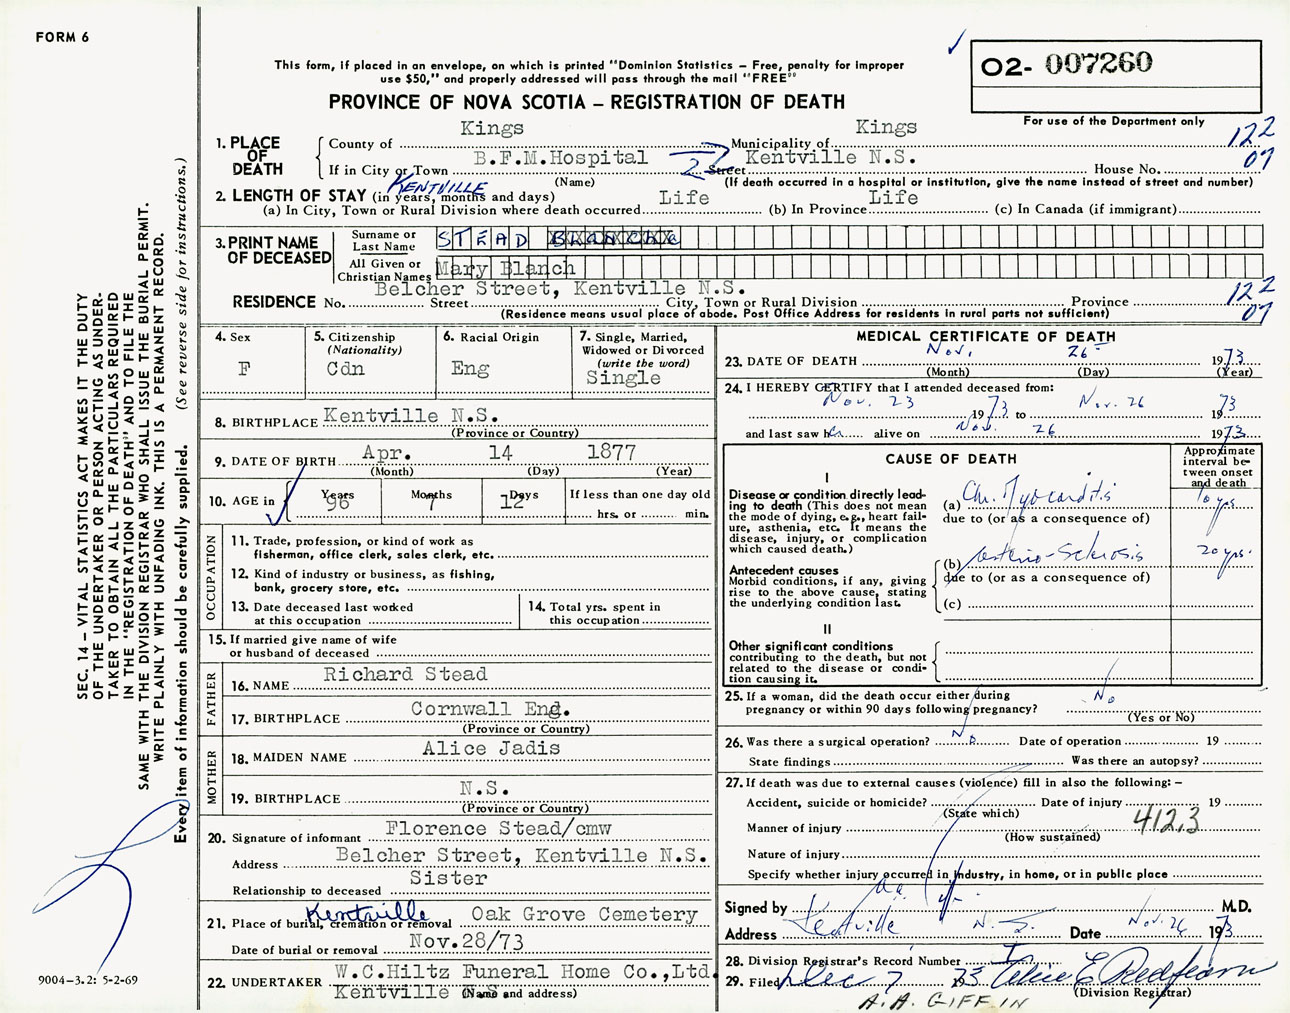 FORM 6
This form, if placed in an envelope, on which is printed "Dominion Statistics – Free, penalty for improper
use $50," and properly addressed will pass through the mail "FREE"
PROVINCE OF NOVA SCOTIA – REGISTRATION OF DEATH
O2- 007260
For use of the Department only
1. PLACE OF DEATH
County of Kings Municipality of Kings 122
If in City or Town B.F.M.Hospital 27 Street Kentville N.S. House No. 07
(Name) (If death occurred in a hospital or institution, give the name instead of street and number)
KENTVILLE
2. LENGTH OF STAY (in years, months and days)
(a) In City, Town or Rural Division where death occurred Life (b) In Province Life (c) In Canada (if immigrant)
3. PRINT NAME OF DECEASED
Surname or Last Name STEAD
All Given or Christian Names Mary Blanch
Belcher Street, Kentville N.S. 122
RESIDENCE No. Street City, Town or Rural Division Province 07
(Residence means usual place of abode. Post Office Address for residents in rural parts not sufficient)
4. Sex
F
5. Citizenship (Nationality)
Cdn
6. Racial Origin
Eng
7. Single, Married, Widowed or Divorced (write the word)
Single
8. BIRTHPLACE Kentville N.S.
(Province or Country)
9. DATE OF BIRTH Apr. 14 1877
(Month) (Day) (Year)
10. AGE in Years 96 Months 7 Days 12 If less than one day old
hrs. or min.
OCCUPATION
11. Trade, profession, or kind of work as
fisherman, office clerk, sales clerk, etc.
12. Kind of industry or business, as fishing,
bank, grocery store, etc.
13. Date deceased last worked
at this occupation
14. Total yrs. spent in
this occupation
15. If married give name of wife
or husband of deceased
FATHER
16. NAME Richard Stead
17. BIRTHPLACE Cornwall Eng.
(Province or Country)
MOTHER
18. MAIDEN NAME Alice Jadis
19. BIRTHPLACE N.S.
(Province or Country)
20. Signature of informant Florence Stead/cmw
Address Belcher Street, Kentville N.S.
Relationship to deceased Sister
21. Place of burial, cremation or removal Kentville Oak Grove Cemetery
Date of burial or removal Nov.28/73
22. UNDERTAKER W.C.Hiltz Funeral Home Co.,Ltd.
Kentville N.S. (Name and address)
MEDICAL CERTIFICATE OF DEATH
23. DATE OF DEATH Nov. 26 1973
(Month) (Day) (Year)
24. I HEREBY CERTIFY that I attended deceased from:
Nov. 23 1973 to Nov. 26 1973
and last saw her alive on Nov. 26 1973
CAUSE OF DEATH
Approximate interval between onset and death
I
Disease or condition directly lead-
ing to death (This does not mean
the mode of dying, e.g., heart fail-
ure, asthenia, etc. It means the
disease, injury, or complication
which caused death.)
(a) Chr. Myocarditis 10 yrs
due to (or as a consequence of)
(b) Arterio-Sclerosis 20 yrs.
due to (or as a consequence of)
(c)
Antecedent causes
Morbid conditions, if any, giving
rise to the above cause, stating
the underlying condition last.
II
Other significant conditions
contributing to the death, but not
related to the disease or condi-
tion causing it.
25. If a woman, did the death occur either during
pregnancy or within 90 days following pregnancy? No
(Yes or No)
26. Was there a surgical operation? No Date of operation 19
State findings Was there an autopsy?
27. If death was due to external causes (violence) fill in also the following: –
Accident, suicide or homicide? Date of injury 19
(State which)
Manner of injury 412.3
(How sustained)
Nature of injury
Specify whether injury occurred in Industry, in home, or in public place
Signed by M.D.
Address Kentville N.S. Date Nov. 26 1973
28. Division Registrar's Record Number
29. Filed Dec 7 1973 E. Redfearn
(Division Registrar)
A.A. GIFFIN
SEC. 14 – VITAL STATISTICS ACT MAKES IT THE DUTY
OF THE UNDERTAKER OR PERSON ACTING AS UNDER-
TAKER TO OBTAIN ALL THE PARTICULARS REQUIRED
IN THE "REGISTRATION OF DEATH" AND TO FILE THE
SAME WITH THE DIVISION REGISTRAR WHO SHALL ISSUE THE BURIAL PERMIT.
WRITE PLAINLY WITH UNFADING INK. THIS IS A PERMANENT RECORD.
Every item of information should be carefully supplied. (See reverse side for instructions.)
9004–3.2: 5-2-69